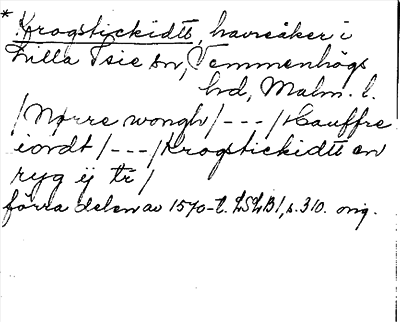 * Krogstickidtt, havreåker i
Lilla Isie sn, Vemmenhögs
hd, Malm. l.
/Nørre wongh/---/Hauffre
iordt/---/Krogstickidtt en
ryg ij tr/
förra delen av 1570-t. LSLB1, s. 310. orig.